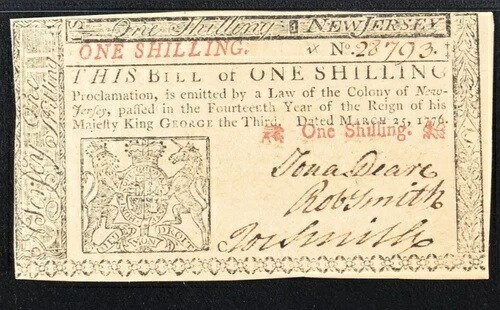 One Shilling NEW JERSEY
ONE SHILLING. No. 28793.
THIS BILL of ONE SHILLING
Proclamation, is emitted by a Law of the Colony of New-
Jersey, passed in the Fourteenth Year of the Reign of his
Majesty King GEORGE the Third. Dated MARCH 25, 1776.
One Shilling.
Jona Deare
Rob Smith
Jos Smith
DIEU ET MON DROIT
Jersey One Shilling